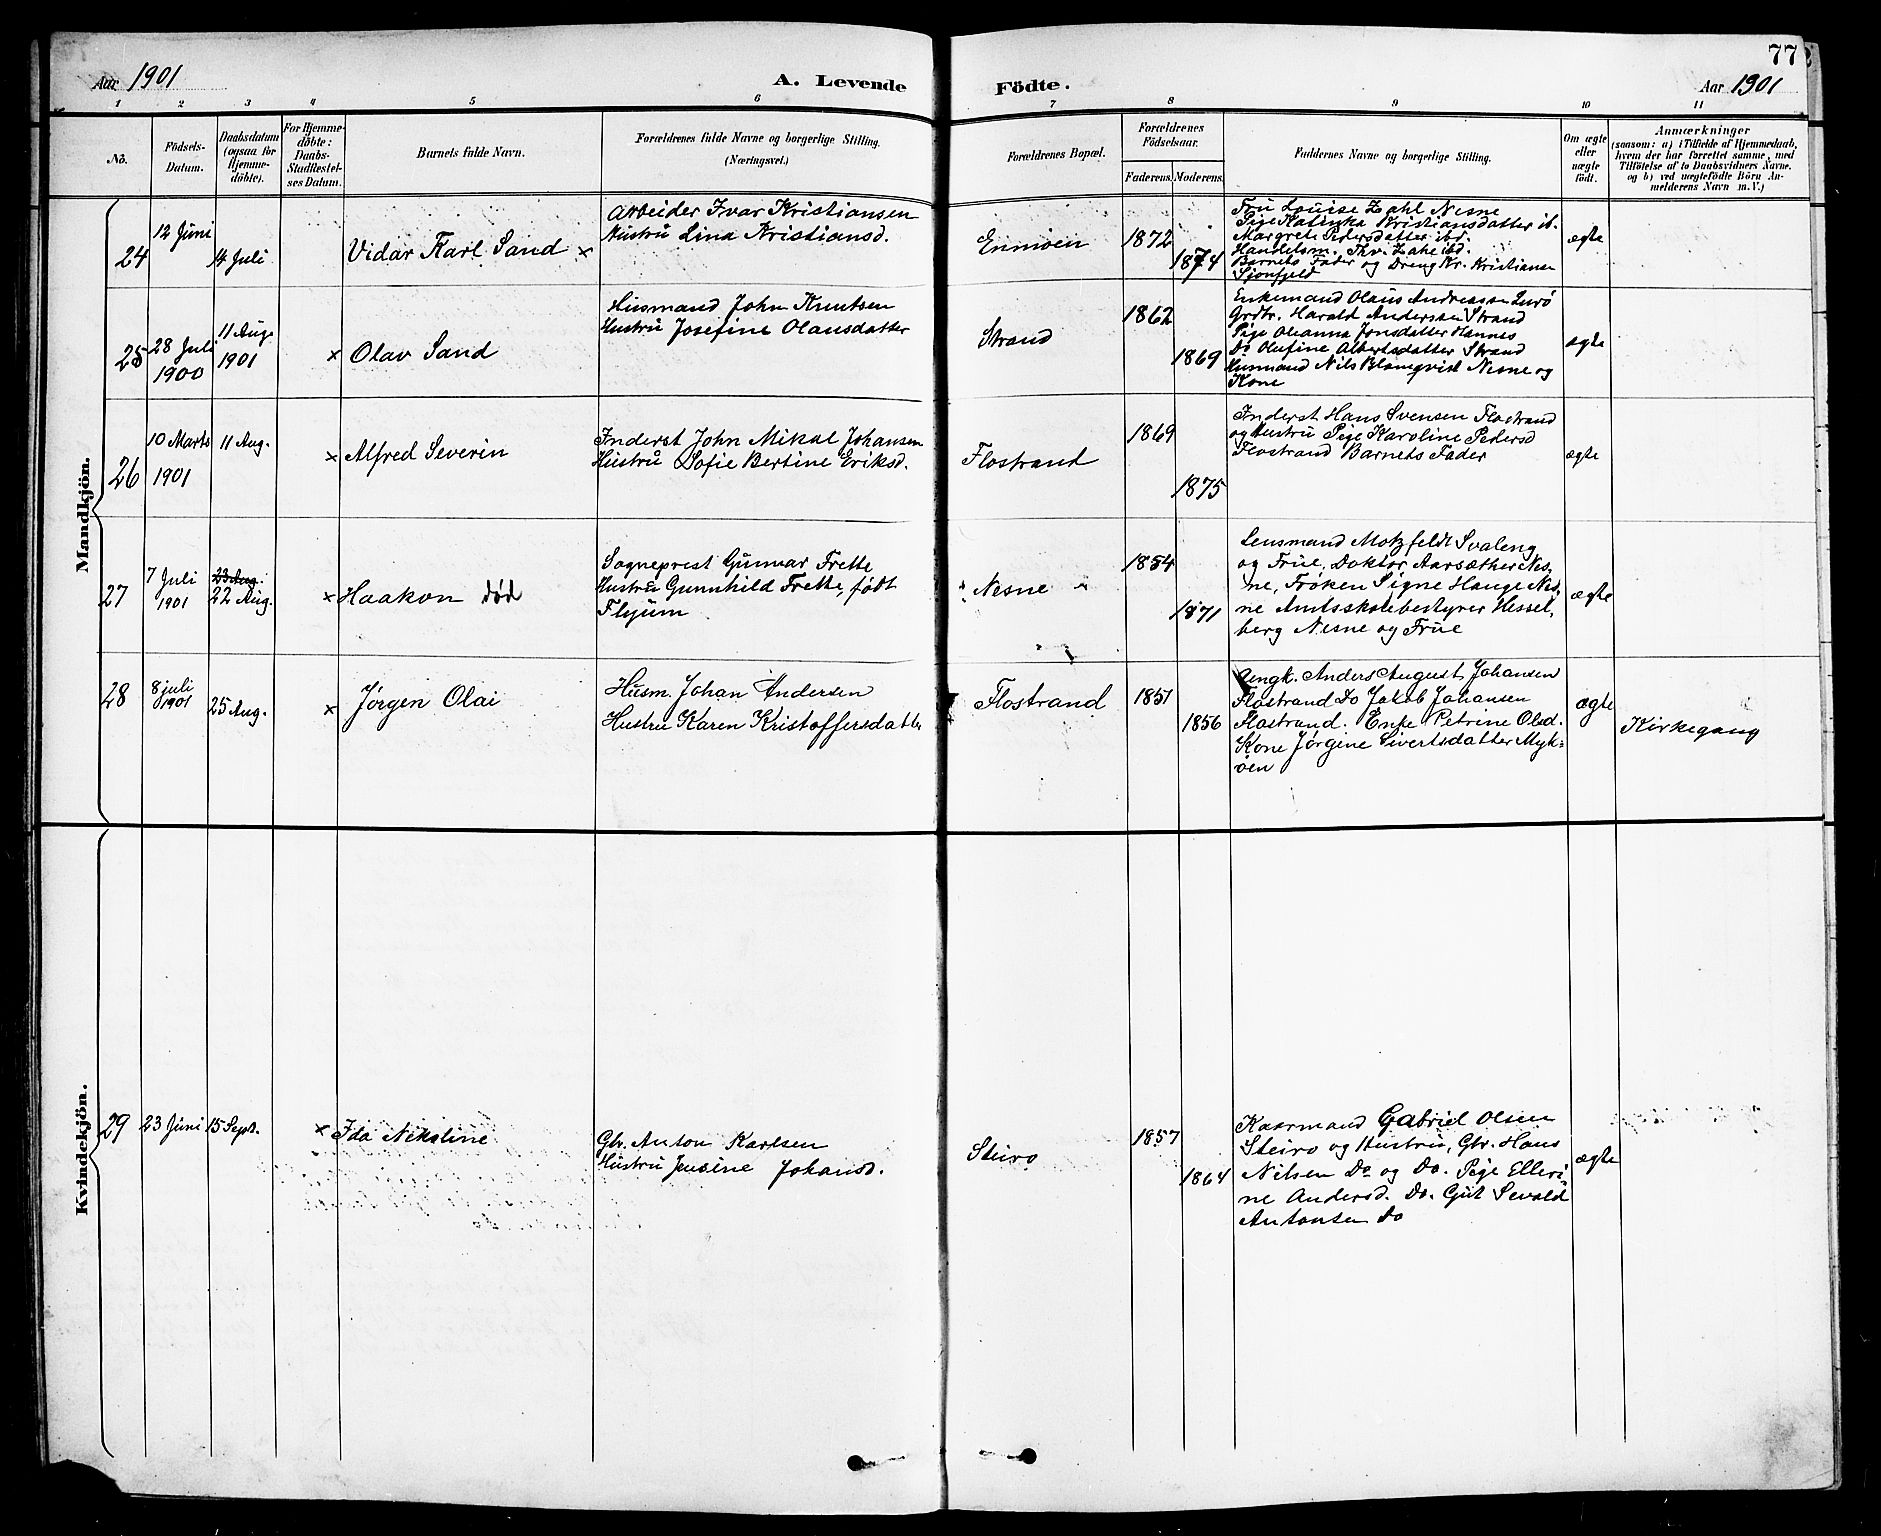 77
Aar 1901
A. Levende Födte.
Aar 1901
1 2 3 4 5 6 7 8 9 10 11
No.
Födsels-
Datum.
Daabsdatum
(ogsaa for
Hjemme-
döbte).
For Hjemme-
döbte:
Daabs-
Stadfæstel-
ses Datum.
Barnets fulde Navn.
Forældrenes fulde Navne og borgerlige Stilling.
(Næringsvei.)
Forældrenes Bopæl.
Forældrenes
Födselsaar.
Faderens. Moderens.
Faddernes Navne og borgerlige Stilling.
Om ægte
eller
uægte
født.
Anmærkninger
(saasom: a) i Tilfælde af Hjemmedaab,
hvem der har forrettet samme, med
Tilföielse af to Daabsvidners Navne.
og b) ved uægtefödte Börn An-
melderens Navn m. V.)
Mandkjön.
24
12 Juni
14 Juli
Vidar Karl Sand ×
Arbeider Ivar Kristiansen
Hustru Lina Kristiansd.
1872
1874
Fru Louise Zahl Nesne
Pige Katinka Kristiansdatter ib.
Margrete Pedersdatter ibd.
Handelsm. Thv. Zahl ibd.
Barnets Fader og Dreng Kr. Kristiansen
Sjonfjeld
ægte
25
28 Juli
1900
11 Aug.
1901
× Olav Sand
Husmand John Knutsen
Hustru Josefine Olausdatter
Strand
1862
1869
Enkemand Olaus Andreassen Lurö
Grdbr. Harald Andersen Strand
Pige Oleanna Jonsdatter Hannes
Do Olufine Albertsdatter Strand
Husmand Nils Blomqvist Nesne og
Kone
ægte
26
10 Marts
1901
11 Aug.
× Alfred Severin
Inderst John Mikal Johansen
Hustru Sofie Bertine Eriksd.
Flostrand
1869
1875
Inderst Hans Svensen Flostrand
og Hustru Pige Karoline Pedersd
Flostrand Barnets Fader
ægte
27
7 Juli
1901
23 Aug.
22 Aug.
× Haakon død
Sogneprest Gunnar Frette
Hustru Gunnhild Frette, født
Nesne
1854
1871
Lensmand Motzfeldt Svaleng
og Frue, Doktor Aarsæther Nes-
ne, Frøken Signe Hauge Nes-
ne Amtsskolebestyrer Hessel-
berg Nesne og Frue
ægte
28
8 juli
1901
25 Aug.
× Jørgen Olai
Husm. Johan Andersen
Hustru Karen Kristoffersdatter
Flostrand
1851
1856
Ungk. Anders August Johansen
Flostrand Do Jakob Johansen
Flostrand. Enke Petrine Olsd.
Kone Jørgine Sivertsdatter Myk-
öen
ægte
Kirkegang
Kvindekjön.
29
23 Juni
15 Sept.
× Ida Nikoline
Gbr. Anton Karlsen
Hustru Jensine Johansd.
Steiro
1857
1864
Kaarmand Gabriel Olsen
Steiro og Hustru, Gbr. Hans
Nilsen Do og Do. Pige Elleri-
ne Andersd. Do. Gut Sevald
Antonsen Do
ægte